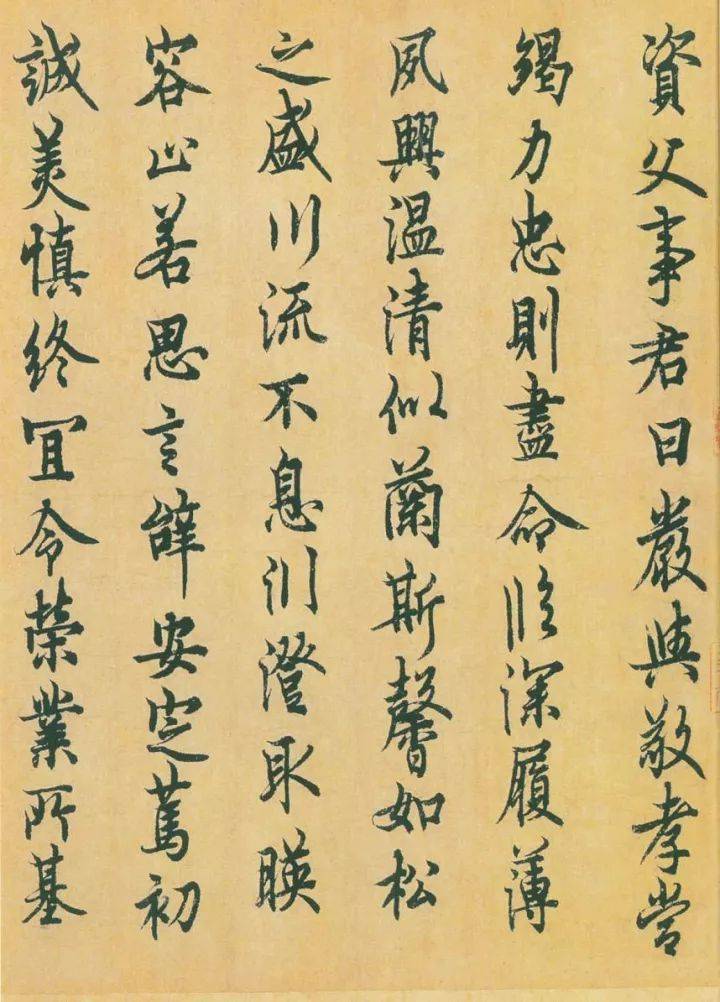 資父事君曰嚴與敬孝當
竭力忠則盡命臨深履薄
夙興溫清似蘭斯馨如松
之盛川流不息川澄取暎
容止若思言辭安定篤初
誠美慎終宜令榮業所基